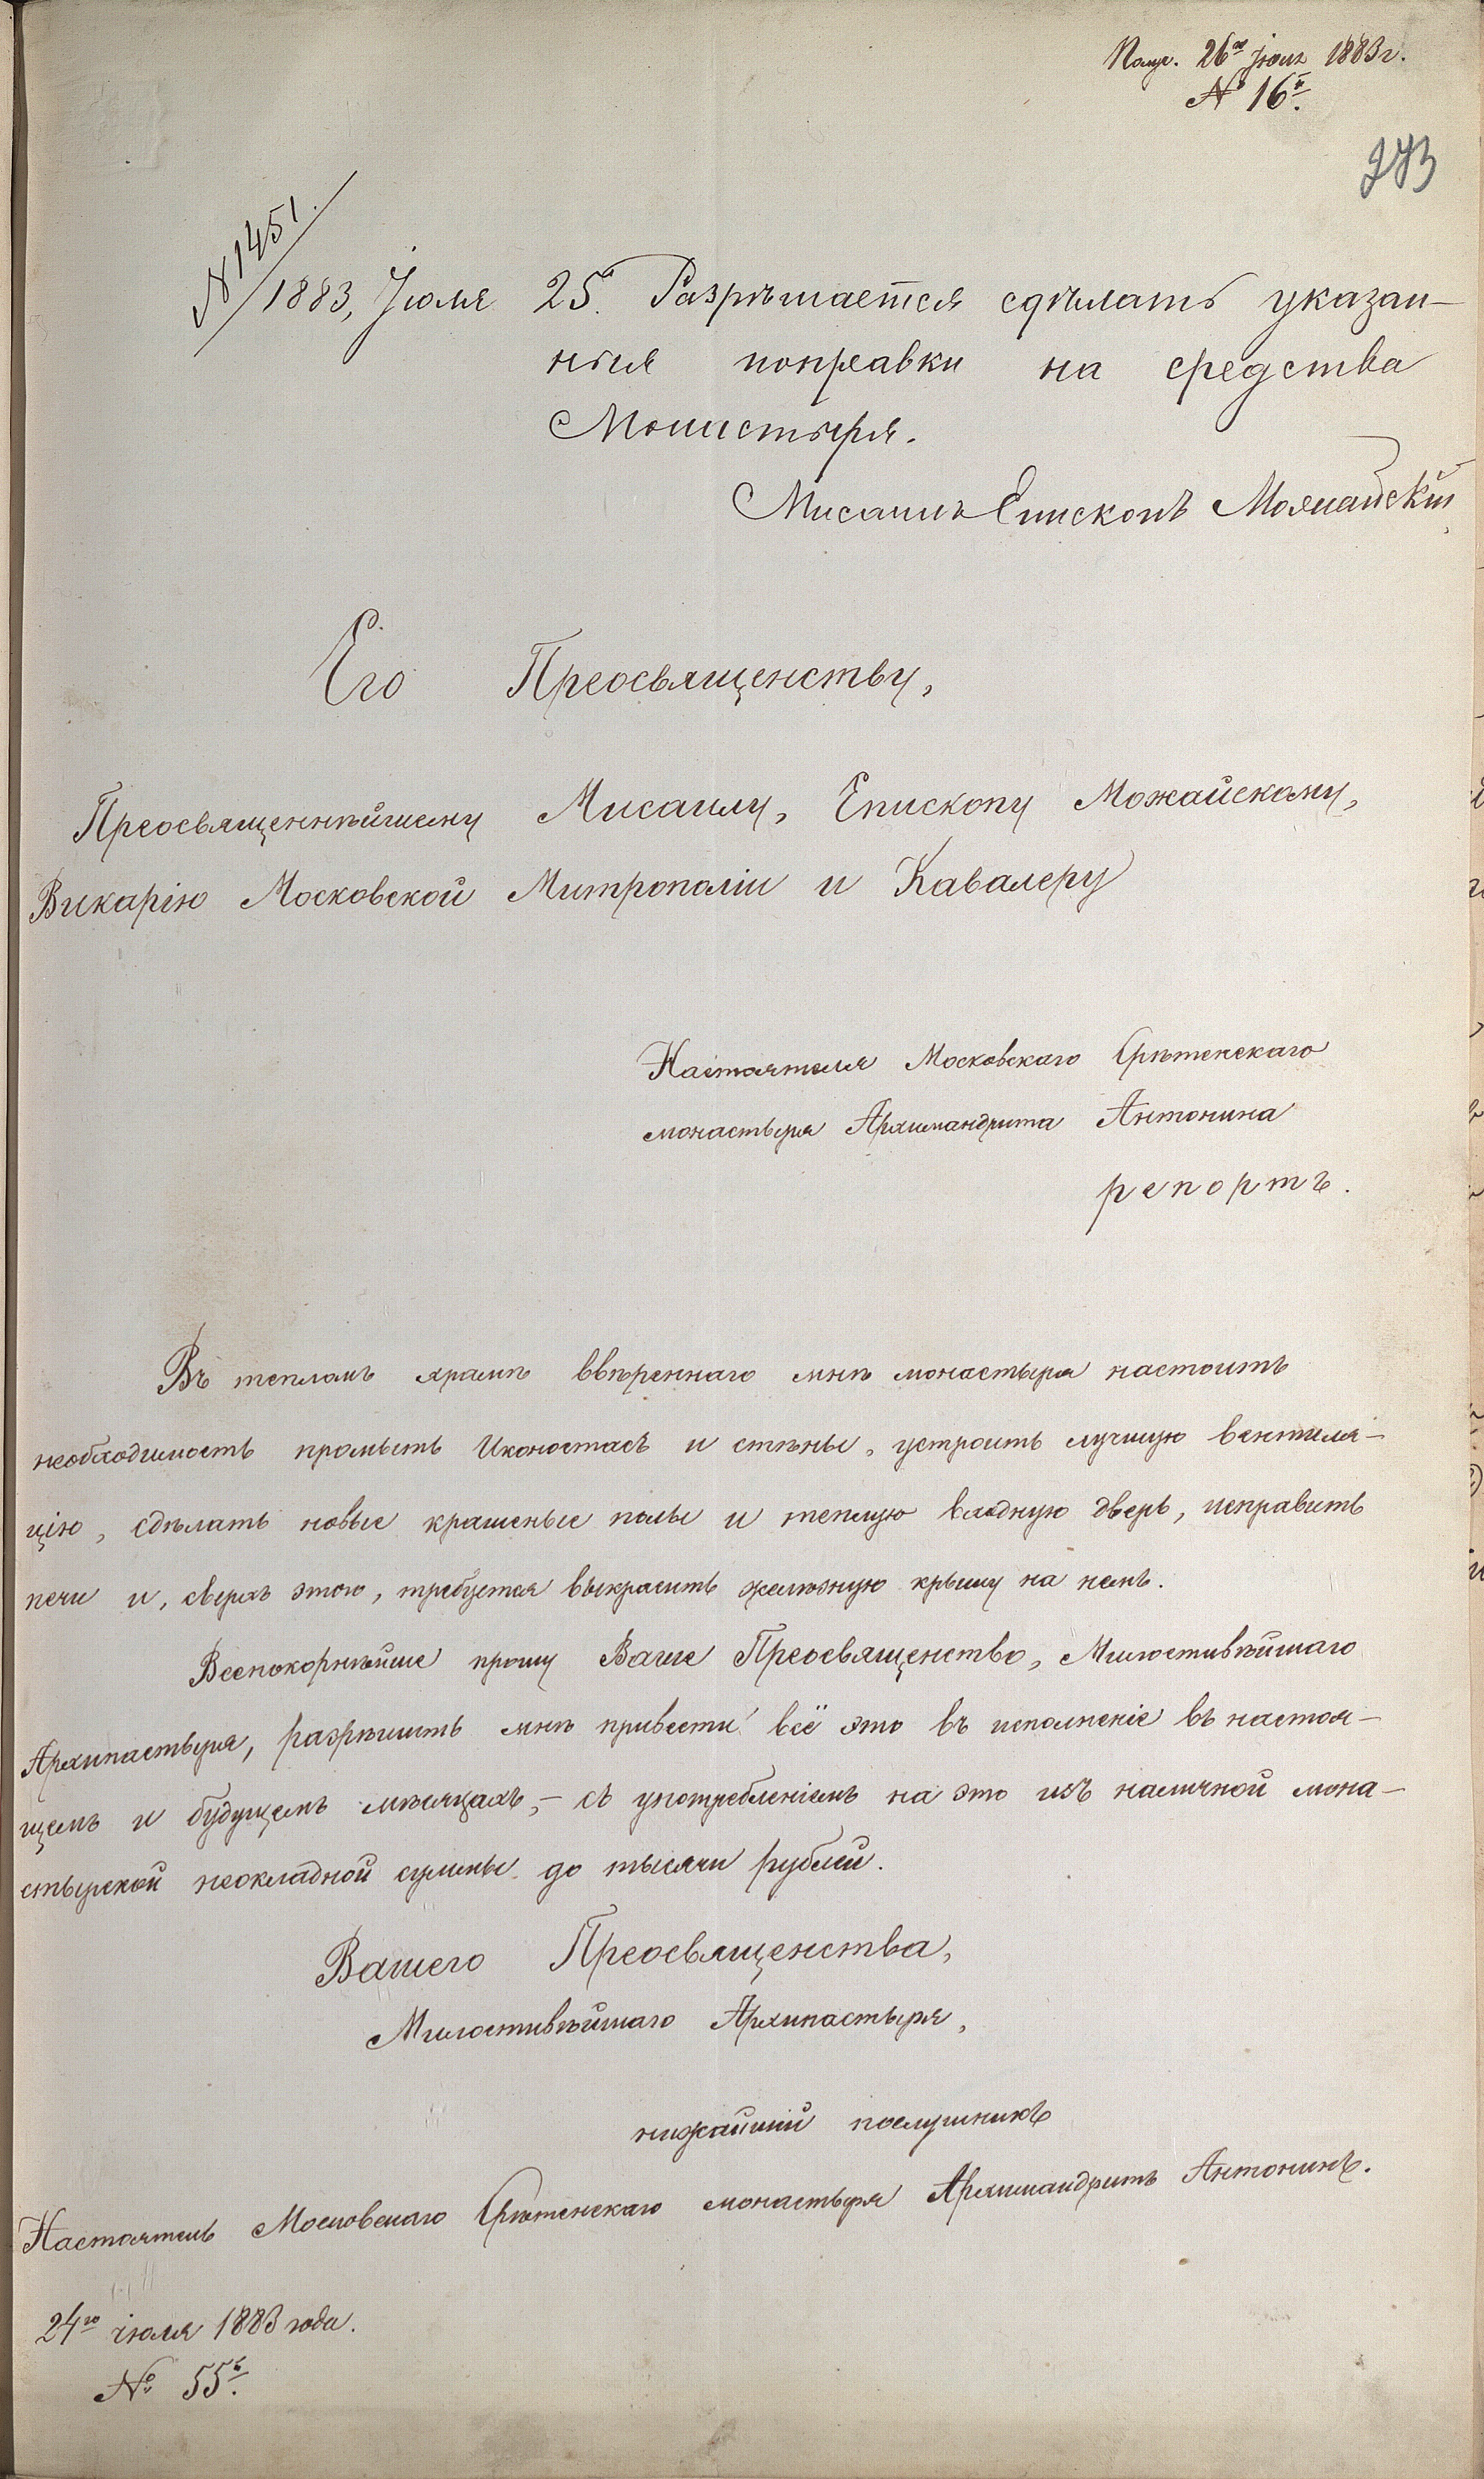 Получ. 26го Іюля 1883 г.
№ 16й.
273
№ 1451.
1883, Іюля 25. Разрѣшается сдѣлать указан-
ныя поправки на средства
Монастыря.
Мисаилъ Епископъ Можайскій
Его Преосвященству,
Преосвященнѣйшему Мисаилу, Епископу Можайскому,
Викарію Московской Митрополіи и Кавалеру
Настоятеля Московскаго Срѣтенскаго
монастыря Архимандрита Антонина
репортъ.
Въ тепломъ храмѣ ввѣреннаго мнѣ монастыря настоитъ
необходимость промыть Иконостасъ и стѣны, устроить лучшую вентиля-
цію, сдѣлать новые крашеные полы и теплую входную дверь, исправить
печи и, сверхъ этого, требуется выкрасить желѣзную крышу на немъ.
Всепокорнѣйше прошу Ваше Преосвященство, Милостивѣйшаго
Архипастыря, разрѣшить мнѣ привести всё это въ исполненіе въ настоя-
щемъ и будущемъ мѣсяцахъ, – съ употребленіемъ на это изъ наличной мона-
стырской неокладной суммы до тысячи рублей.
Вашего Преосвященства,
Милостивѣйшаго Архипастыря,
нижайшій послушникъ
Настоятель Московскаго Срѣтенскаго монастыря Архимандритъ Антонинъ.
24го іюля 1883 года.
№ 55й.